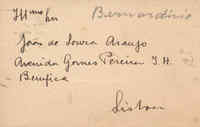 Illmo Snr
Bernardino
João de Souza Araujo
Avenida Gomes Pereira J. H.
Bemfica
Lisboa